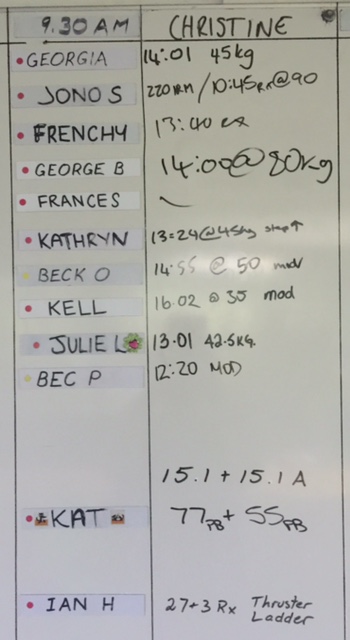 9.30 AM CHRISTINE
GEORGIA 14:01 45kg
JONO S 220 RM / 10:45 Rx @ 90
FRENCHY 13:40 Rx
GEORGE B 14:00 @ 80kg
FRANCES
KATHRYN 13:24 @ 45kg step↑
BECK O 14:55 @ 50 mod
KELL 16.02 @ 35 mod
JULIE L 13.01 42.5KG.
BEC P 12:20 MOD
15.1 + 15.1 A
KAT 77 PB + 55 PB
IAN H 27+3 Rx Thruster
Ladder